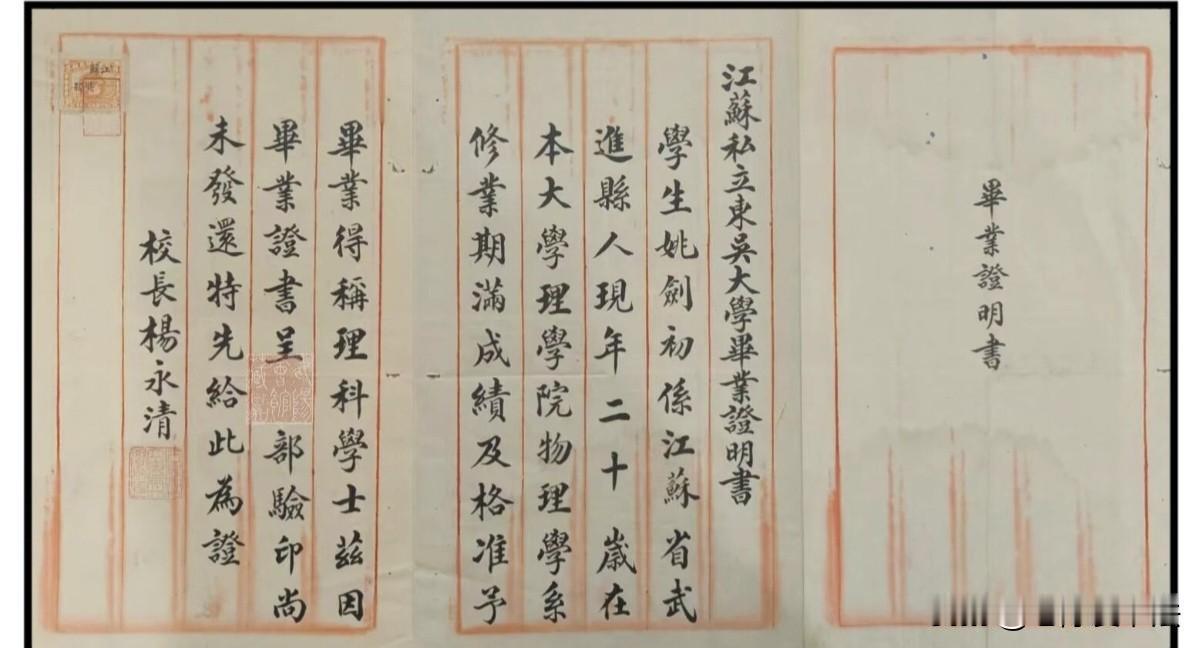 畢業證明書
江蘇私立東吳大學畢業證明書
學生姚劍初係江蘇省武
進縣人現年二十歲在
本大學理學院物理學系
修業期滿成績及格准予
畢業得稱理科學士茲因
畢業證書呈部驗印尚
未發還特先給此為證
校長楊永清
江蘇